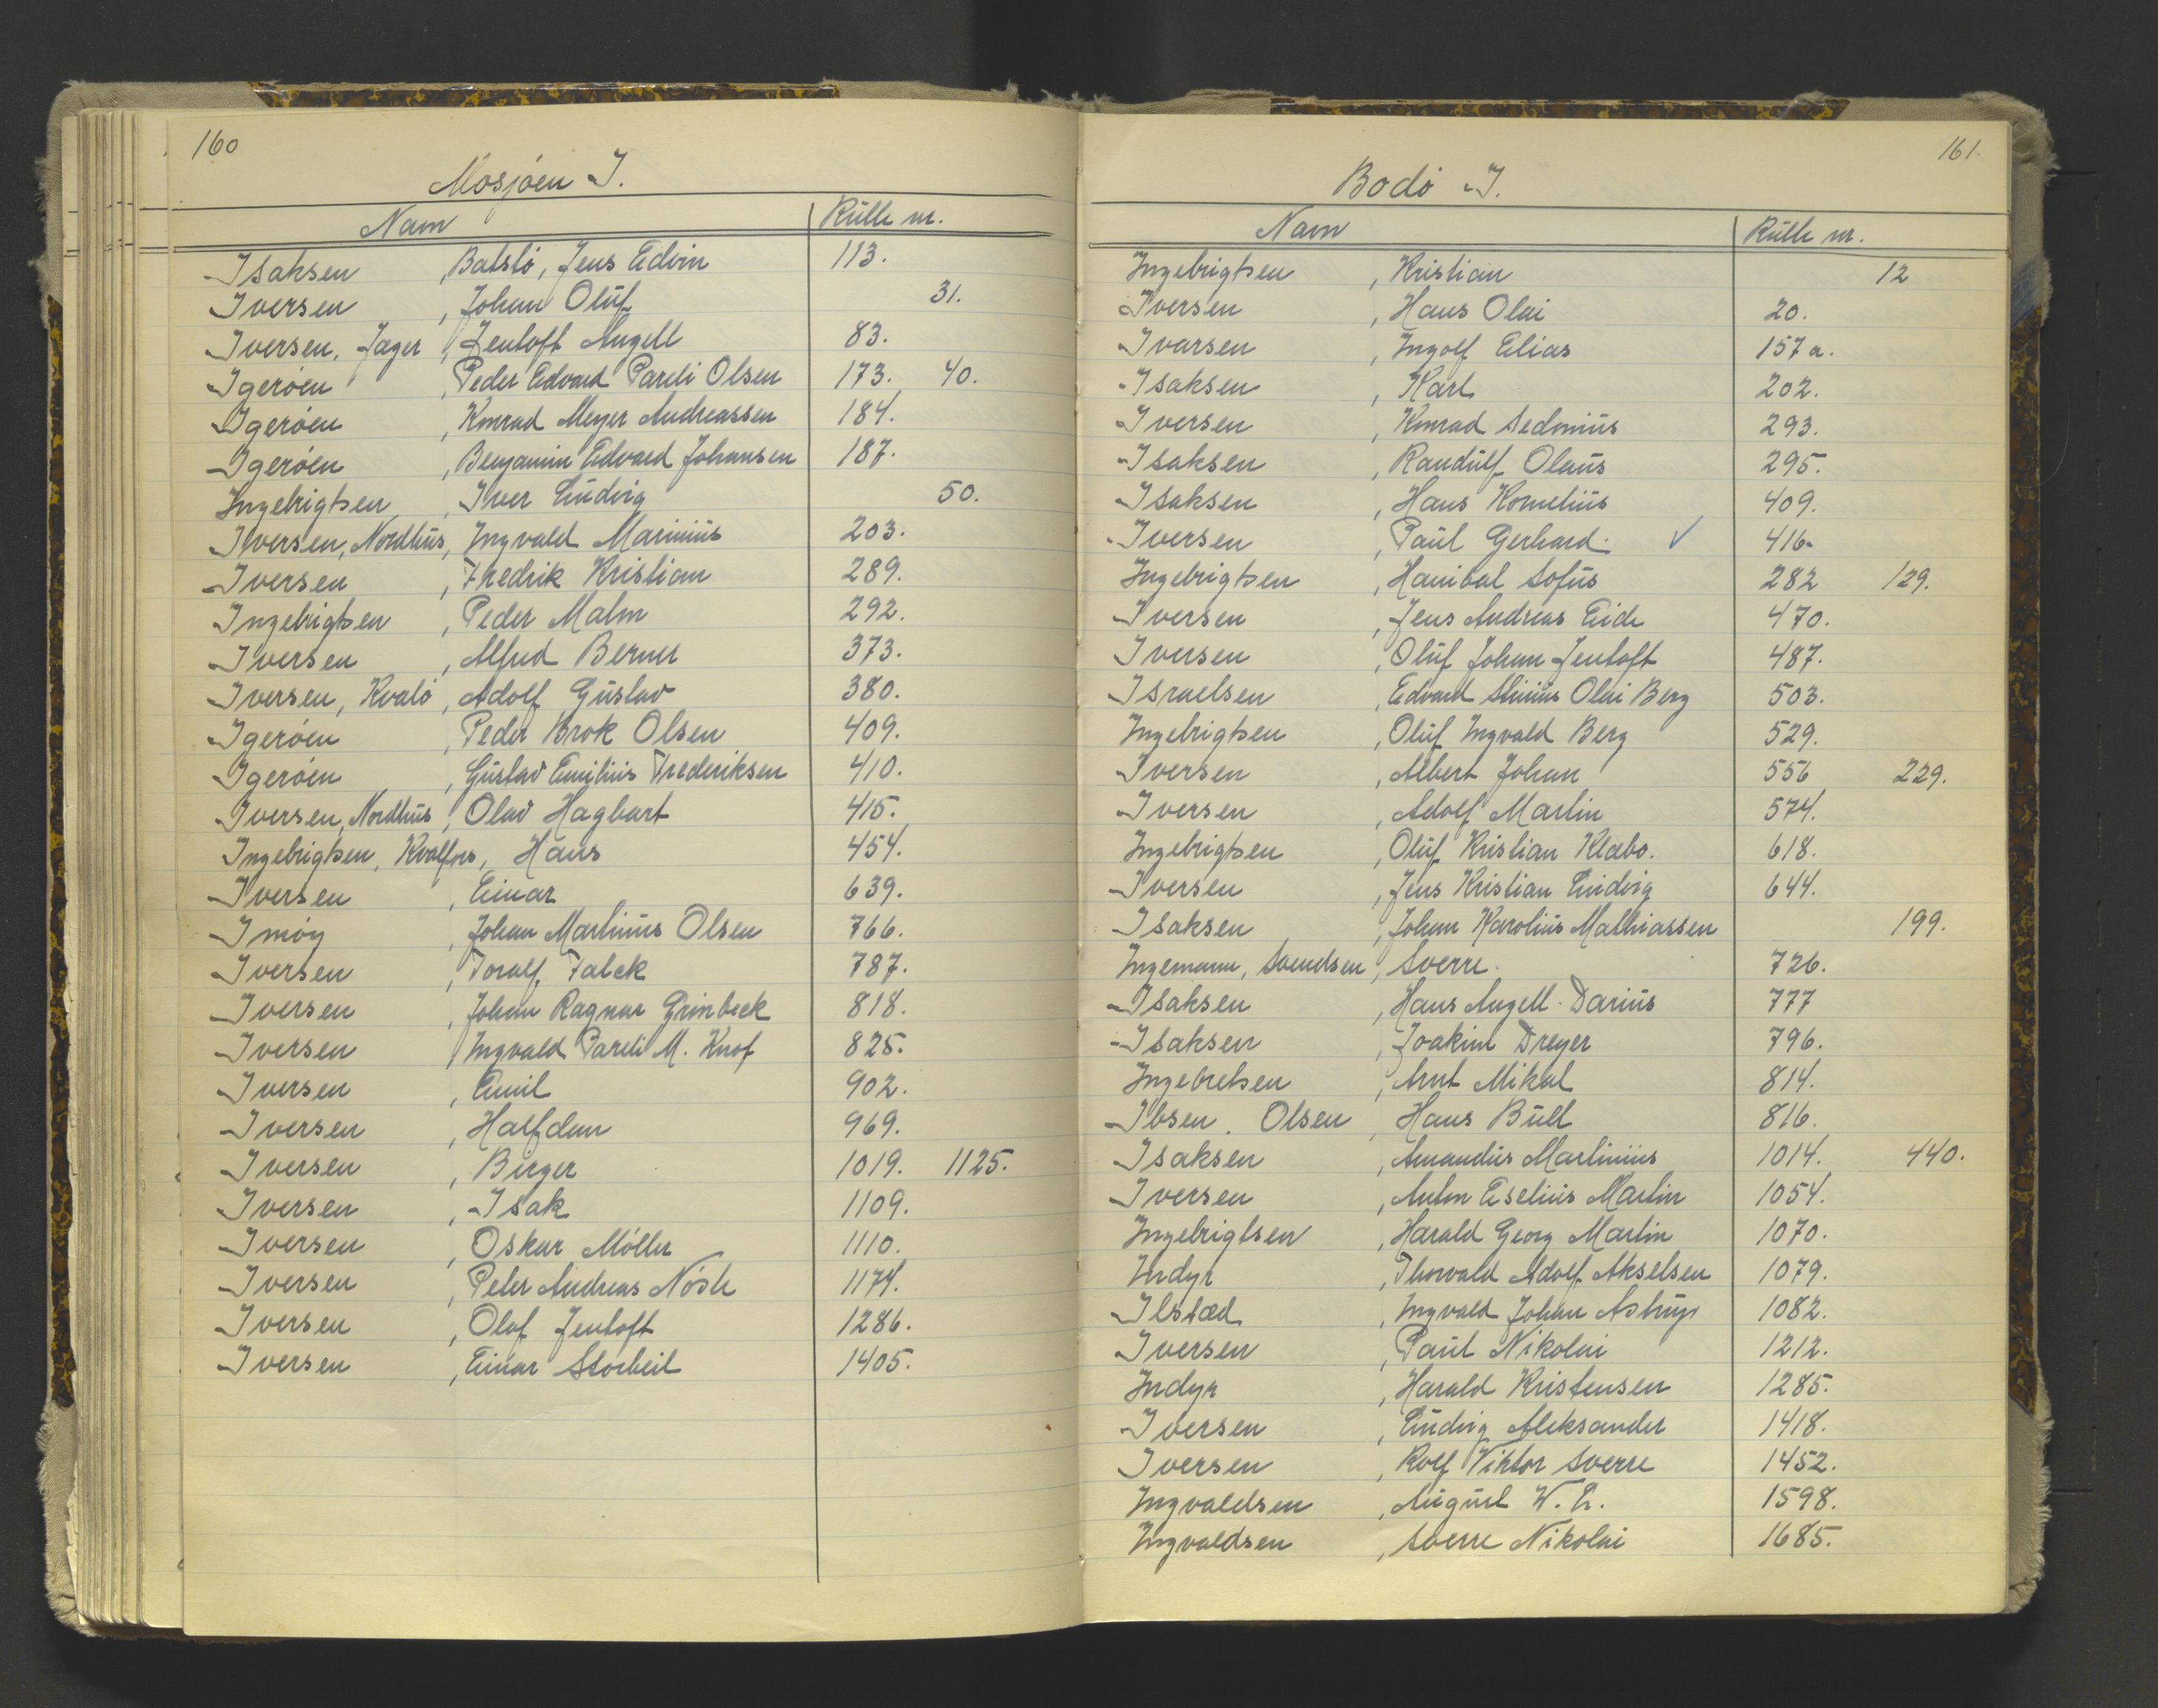 160
Mosjøen I.
Navn Rulle nr.
Isaksen , Batslø, Jens Edvin 113.
Iversen , Johan Oluf 31.
Iversen, Jæger , Zentoft Angell 83.
Igerøen , Peder Edvard Pareli Olsen 173. 40.
Igerøen , Konrad Meyer Andreassen 184.
Igerøen , Benjamin Edvard Johansen 187.
Ingebrigtsen , Iver Ludvig 50.
Iversen, Nordhus, Ingvald Marinius 203.
Iversen , Fredrik Kristian 289.
Ingebrigtsen , Peder Malm 292.
Iversen , Alfred Berner 373.
Iversen, Kvalø , Adolf Gustav 380.
Igerøen , Peder Brok Olsen 409.
Igerøen , Gustav Emilius Frederiksen 410.
Iversen, Nordhus , Olav Hagbart 415.
Ingebrigtsen, Kvalfors, Hans 454.
Iversen , Einar 639.
Imøy , Johan Martinus Olsen 766.
Iversen , Toralf Falck 787.
Iversen , Johan Ragnar Grinbeck 818.
Iversen , Ingvald Pareli M. Knof 825.
Iversen , Emil 902.
Iversen , Halfdan 969.
Iversen , Birger 1019. 1125.
Iversen , Isak 1109.
Iversen , Oskar Møller 1110.
Iversen , Peter Andreas Nøsle 1174.
Iversen , Olaf Jentoft 1286.
Iversen , Einar Storbeil 1405.
161.
Bodø I.
Navn Rulle nr.
Ingebrigtsen , Kristian 12
Iversen , Hans Olai 20.
Ivarsen , Ingolf Elias 157 a.
Isaksen , Karl 202.
Iversen , Konrad Sedonius 293.
Isaksen , Randulf Olaus 295.
Isaksen , Hans Kornelius 409.
Iversen , Paul Gerhard. ✓ 416.
Ingebrigtsen , Hanibal Sofus 282 129.
Iversen , Jens Andreas Eide 470.
Iversen , Oluf Johan Jentoft 487.
Israelsen , Edvard Olai Berg 503.
Ingebrigtsen , Oluf Ingvald Berg 529.
Iversen , Albert Johan 556 229.
Iversen , Adolf Martin 574.
Ingebrigtsen , Oluf Kristian Klæbo. 618.
Iversen , Jens Kristian Ludvig 644.
Isaksen , Johan Karolius Mathiassen 199.
Ingemann, Svendsen , Sverre. 726.
Isaksen , Hans Angell Darius 777
Isaksen , Joakim Dreyer 796.
Ingebretsen , Arnt Mikal 814.
Ibsen. Olsen , Hans Bull 816.
Isaksen , Amandus Martinius 1014. 440.
Iversen , Anton Eselius Martin 1054.
Ingebrigtsen , Harald Georg Martin 1070.
Indyr , Thorvald Adolf Akselsen 1079.
Ilstad , Ingvald Johan Astrup 1082.
Iversen , Paul Nikolai 1212.
Indyr , Harald Kristensen 1285.
Iversen , Ludvig Aleksander 1418.
Iversen , Rolf Viktor Sverre 1452.
Ingvaldsen , August W. E. 1598.
Ingvaldsen , Sverre Nikolai 1685.